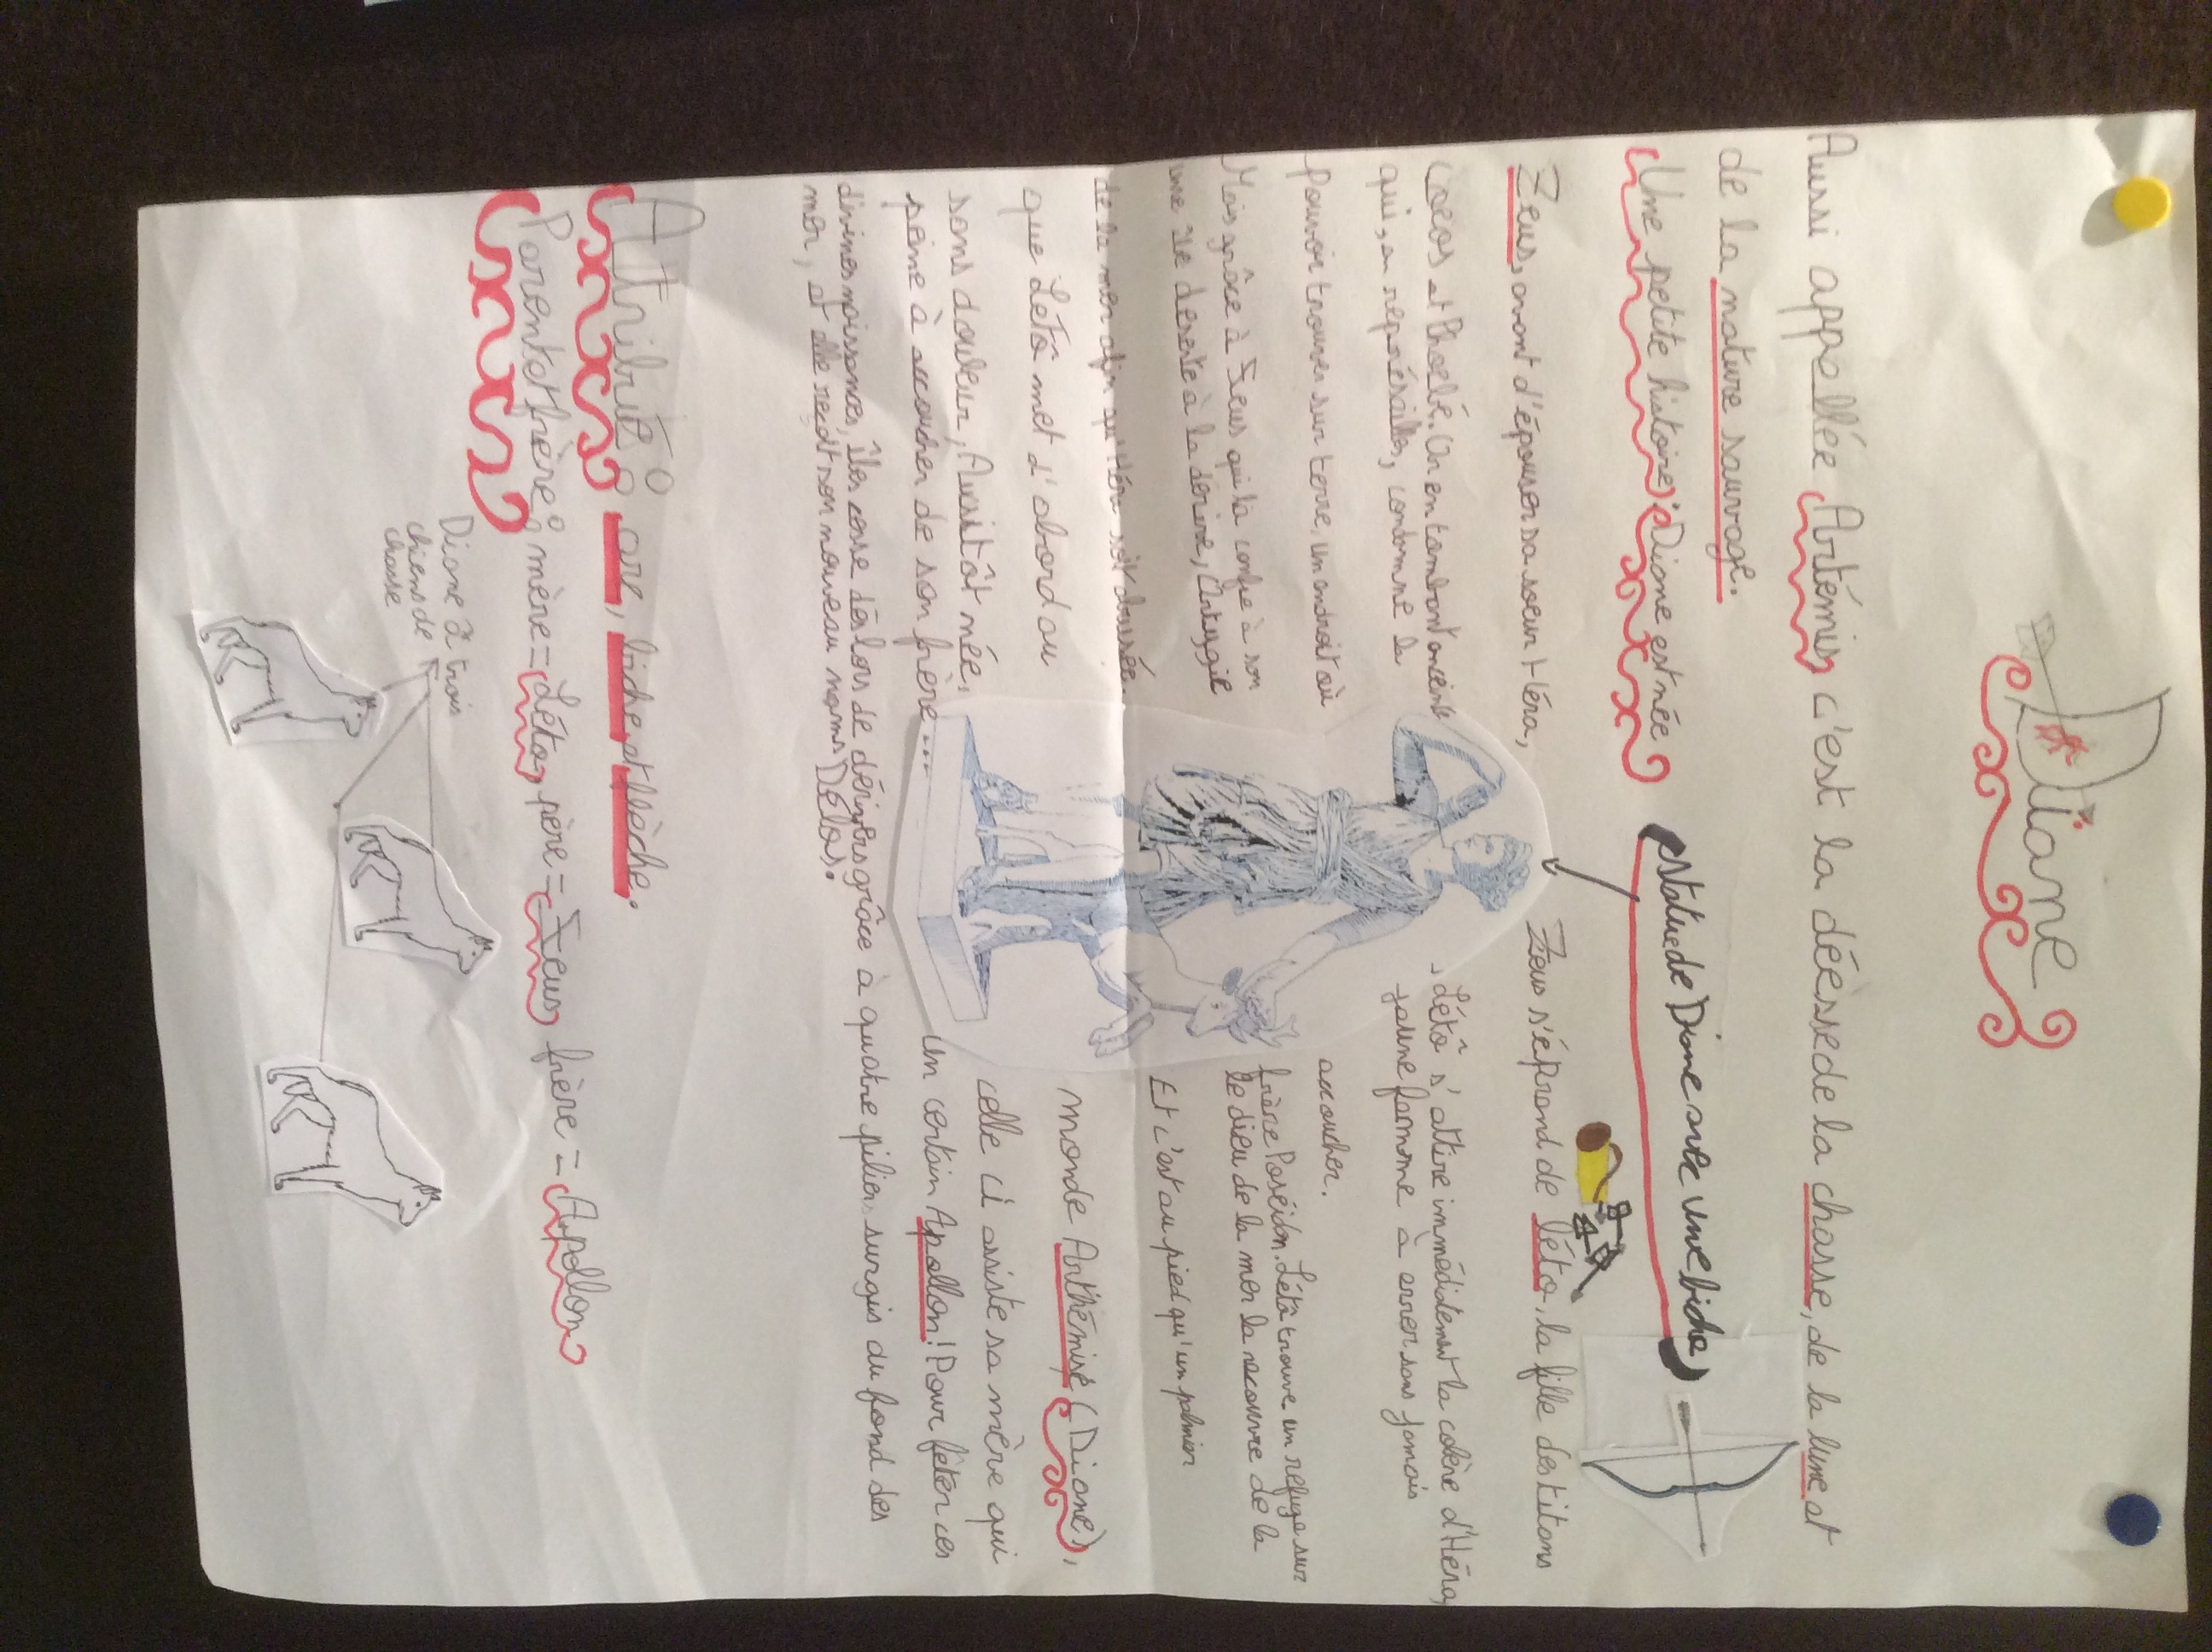 Diane
Aussi appellée Artémis c'est la déesse de la chasse, de la lune et
de la nature sauvage.
Une petite histoire : Diane est née
(statue de Diane avec une biche)
Zeus, avant d'épouser sa soeur Héra, Zeus s'éprend de léto, la fille des titans
Coeos et Phoebé. En tombant enceinte Létô s'attire immédiatement la colère d'Héra,
qui, en représailles, condamne la jeune femme à errer sans jamais
pouvoir trouver sur terre, un endroit où accoucher.
Mais grâce à Zeus qui la confie à son frère Poséidon. Létô trouve un refuge sur
une île déserte à la dérive, Ortygie le dieu de la mer la recouvre de la
de la mer afin qu'Héra soit abusée. Et c'est au pied qu'un palmier
que Létô met d'abord au monde Arthémise (Diane),
sans douleur, Aussitôt née, celle ci assiste sa mère qui
peine à accoucher de son frère... un certain Apollon! Pour fêter ces
divines naissances, îles cesse dès lors de dériver grâce à quatre piliers surgis du fond des
mer, et elle reçoit son nouveau nom: Délos.
Attribué : arc, biche et flèche.
Parent et frère : mère = Léto, père = Zeus, frère = Apollon
Diane à trois
chiens de
chasse